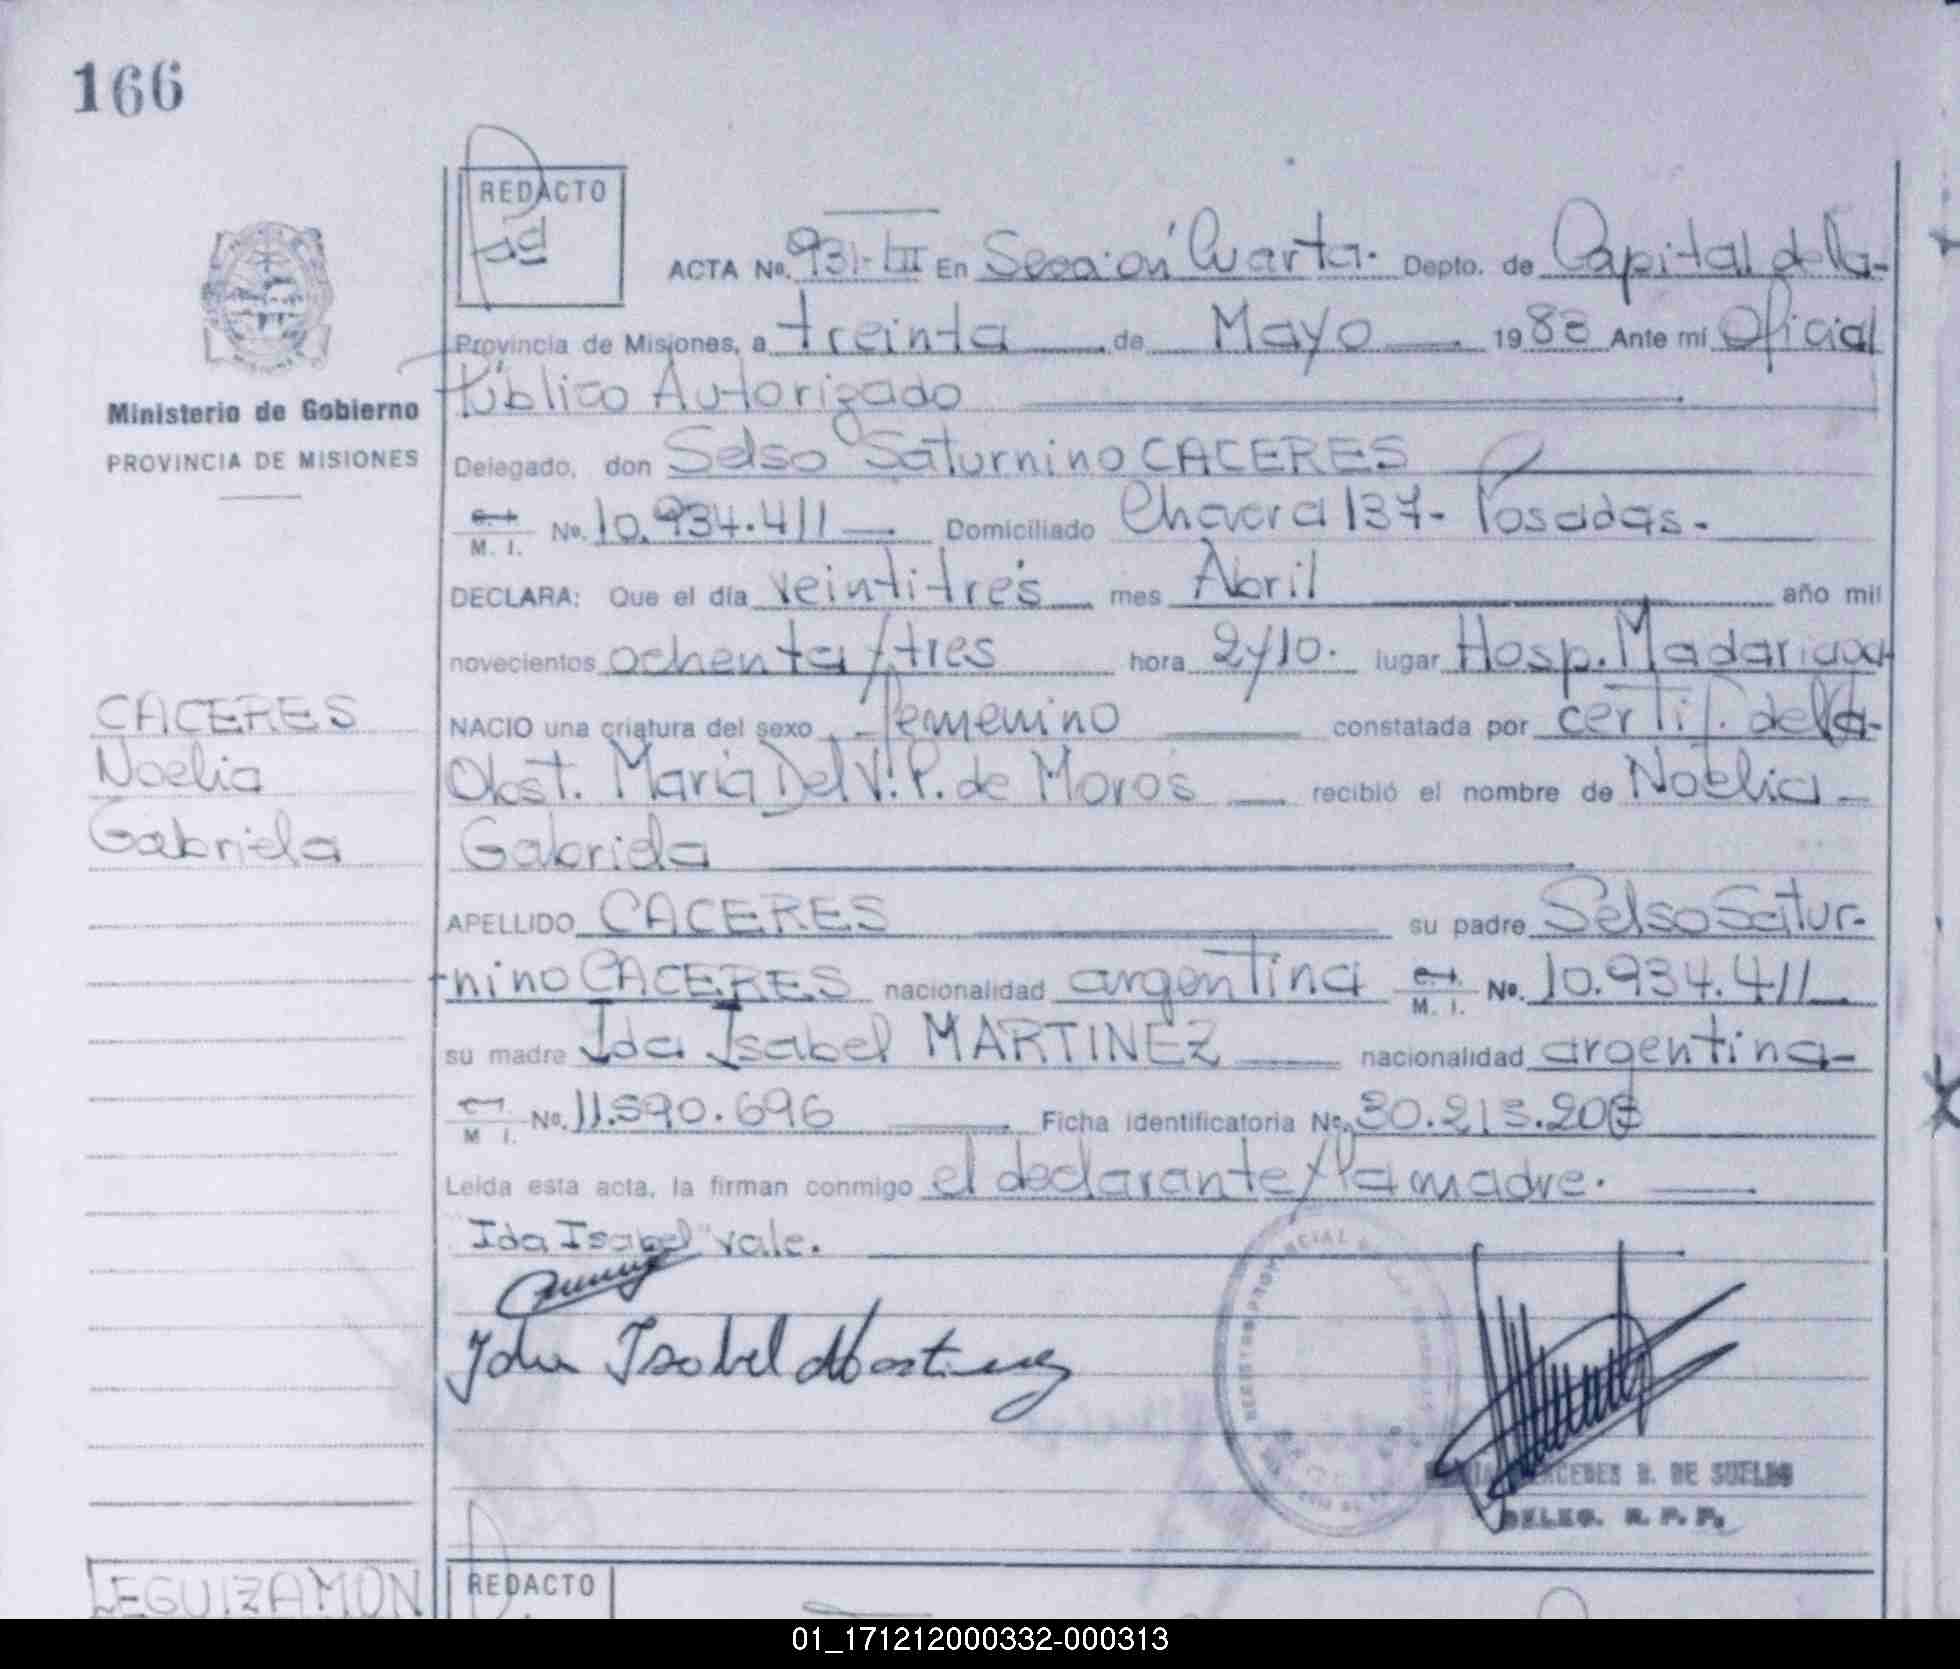 166
REDACTO
ACTA No. 931-III En Sección Cuarta. Depto. de Capital de la-
Provincia de Misiones, a treinta de Mayo 1983 Ante mí Oficial
Público Autorizado
Ministerio de Gobierno
PROVINCIA DE MISIONES
Delegado, don Selso Saturnino CACERES
M. I. No. 10.934.411 Domiciliado Chavera 137- Posadas.
DECLARA: Que el día veintitrés mes Abril año mil
novecientos ochenta y tres hora 2y10. lugar Hosp. Madariaga
CACERES
Noelia
Gabriela
NACIO una criatura del sexo femenino constatada por certif. de la-
Obst. María Del V. P. de Moros recibió el nombre de Noelia
Gabriela
APELLIDO CACERES su padre Selso Satur-
nino CACERES nacionalidad argentina M. I. No. 10.934.411
su madre Ida Isabel MARTINEZ nacionalidad argentina-
M I. No. 11.590.696 Ficha identificatoria No. 30.213.20
Leída esta acta, la firman conmigo el declarante y la madre.
Ida Isabel "vale.
Ida Isabel Martinez
REGISTRO PROVINCIAL
MERCEDES B. DE SUELDO
DELEG. R. P. P.
LEGUIZAMON
REDACTO
01_171212000332-000313